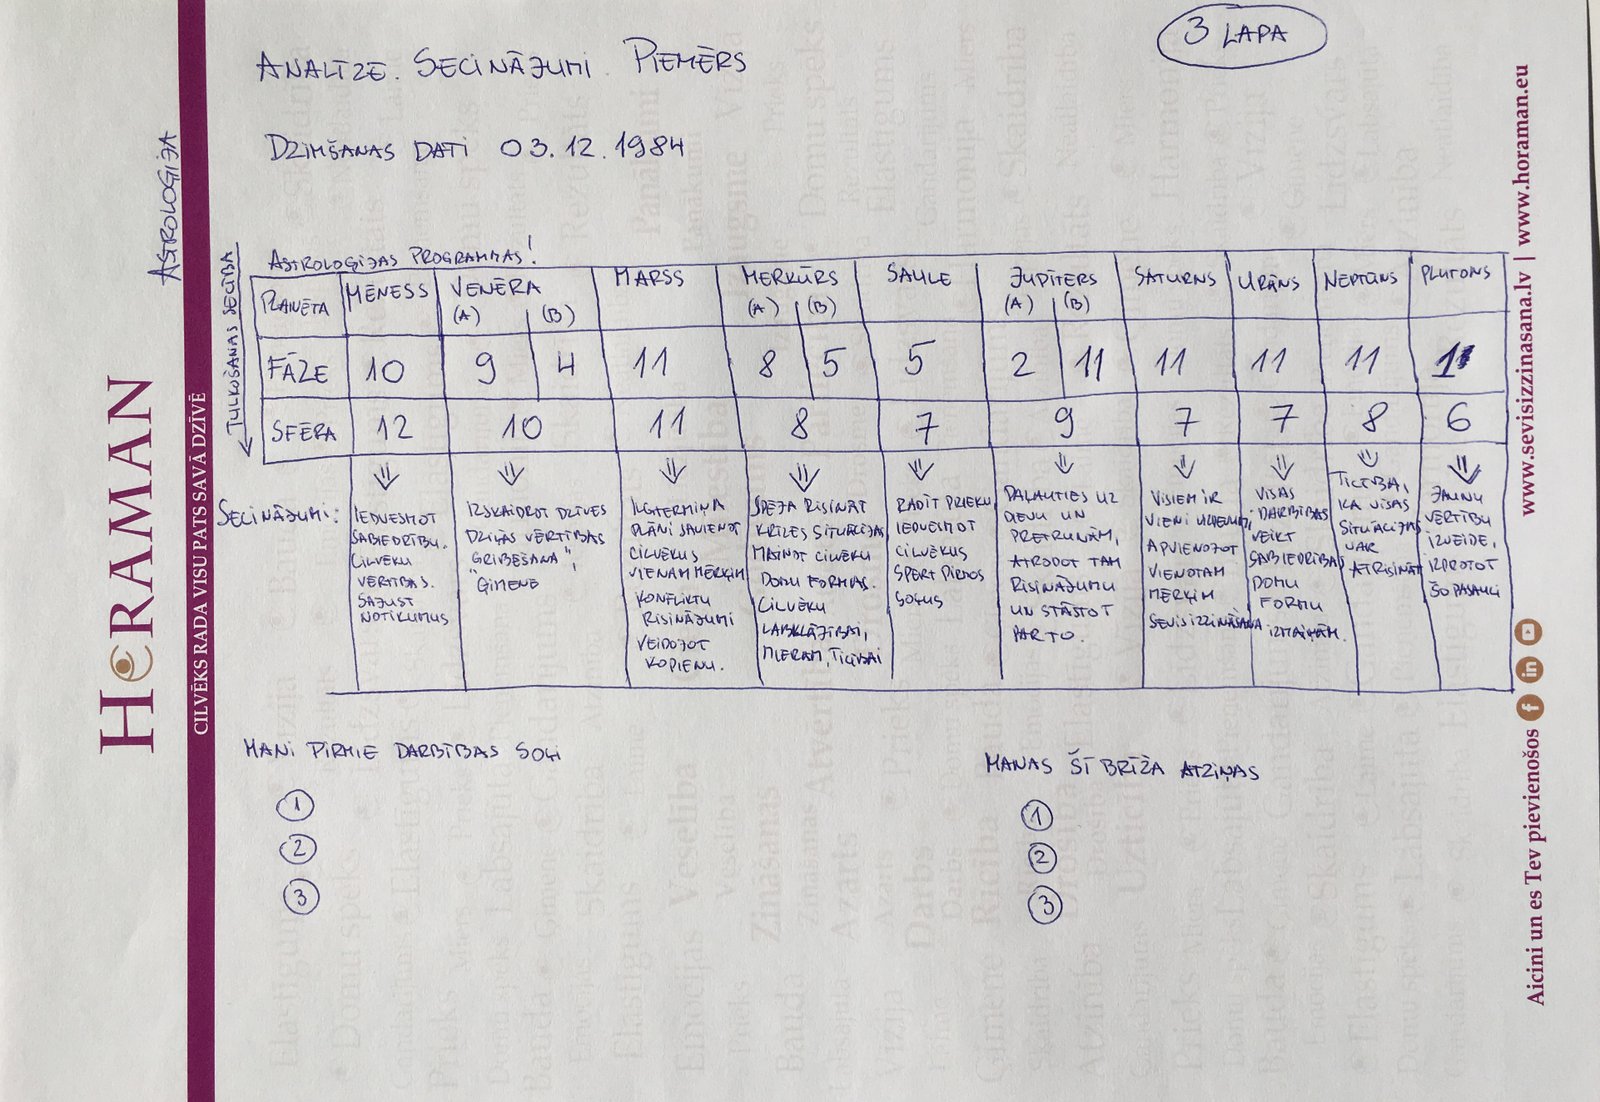 3 LAPA
ANALĪZE. SECINĀJUMI. PIEMĒRS
DZIMŠANAS DATI 03.12.1984
ASTROLOĢIJA
ASTROLOĢIJAS PROGRAMMAS!
TULKOŠANAS SECĪBA
PLANĒTA MĒNESS VENĒRA MARSS MERKŪRS SAULE JUPITERS SATURNS URĀNS NEPTŪNS PLUTONS
(A) (B) (A) (B) (A) (B)
FĀZE 10 9 4 11 8 5 5 2 11 11 11 11 11
SFĒRA 12 10 11 8 7 9 7 7 8 6
SECINĀJUMI:
IEDVESMOT
SABIEDRĪBU.
CILVĒKU
VĒRTĪBAS.
SAJUST
NOTIKUMUS
IZSKAIDROT DZĪVES
DZIĻĀS VĒRTĪBAS
GRIBĒŠANA",
"ĢIMENE
ILGTERMIŅA
PLĀNI SAVIENOT
CILVĒKUS
VIENAM MĒRĶIM
KONFLIKTU
RISINĀJUMI
VEIDOJOT
KOPIENU.
SPĒJA RISINĀT
KRĪZES SITUĀCIJAS
MAINOT CILVĒKU
DOMU FORMAS.
CILVĒKU
LABKLĀJĪBAI,
MIERAM, TICĪBAI
RADĪT PRIEKU
IEDVESMOT
CILVĒKUS
SPERT PIRMOS
SOĻUS
PAĻAUTIES UZ
DIEVU UN
PRETRUNĀM,
ATRODOT TAM
RISINĀJUMU
UN STĀSTOT
PAR TO.
VISIEM IR
VIENI
APVIENOJOT
VIENOTAM
MĒRĶIM
SEVISIZZINĀŠANA
VISAS
DARBĪBAS
VEIKT
SABIEDRĪBAS
DOMU
FORMU
IZMAIŅĀM.
TICĪBA,
KA VISAS
SITUĀCIJAS
VAR
ATRISINĀT
JAUNU
VĒRTĪBU
IZVEIDE,
IZPROTOT
ŠO PASAULI
MANI PIRMIE DARBĪBAS SOĻI
1
2
3
MANAS ŠĪ BRĪŽA ATZIŅAS
1
2
3
HORAMAN
CILVĒKS RADA VISU PATS SAVĀ DZĪVĒ
Aicini un es Tev pievienošos www.sevisizzinasana.lv | www.horaman.eu